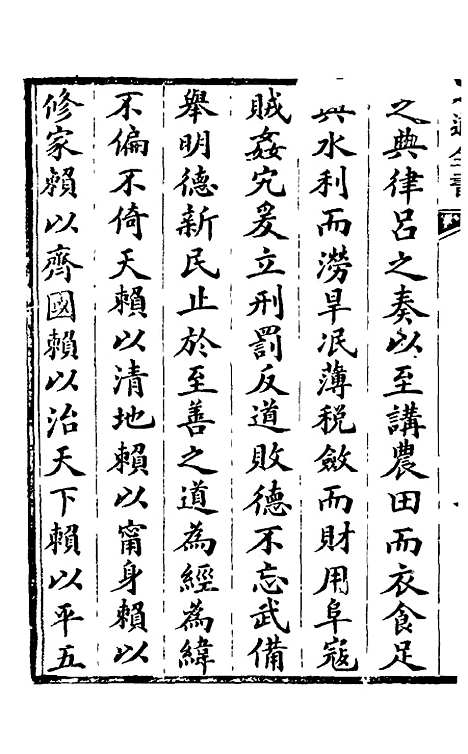 之典律呂之奏以至講農田而衣食足
興水利而澇旱泯薄稅斂而財用阜寇
賊姦宄爰立刑罰反道敗德不忘武備
舉明德新民止於至善之道為經為緯
不偏不倚天賴以清地賴以甯身賴以
修家賴以齊國賴以治天下賴以平五